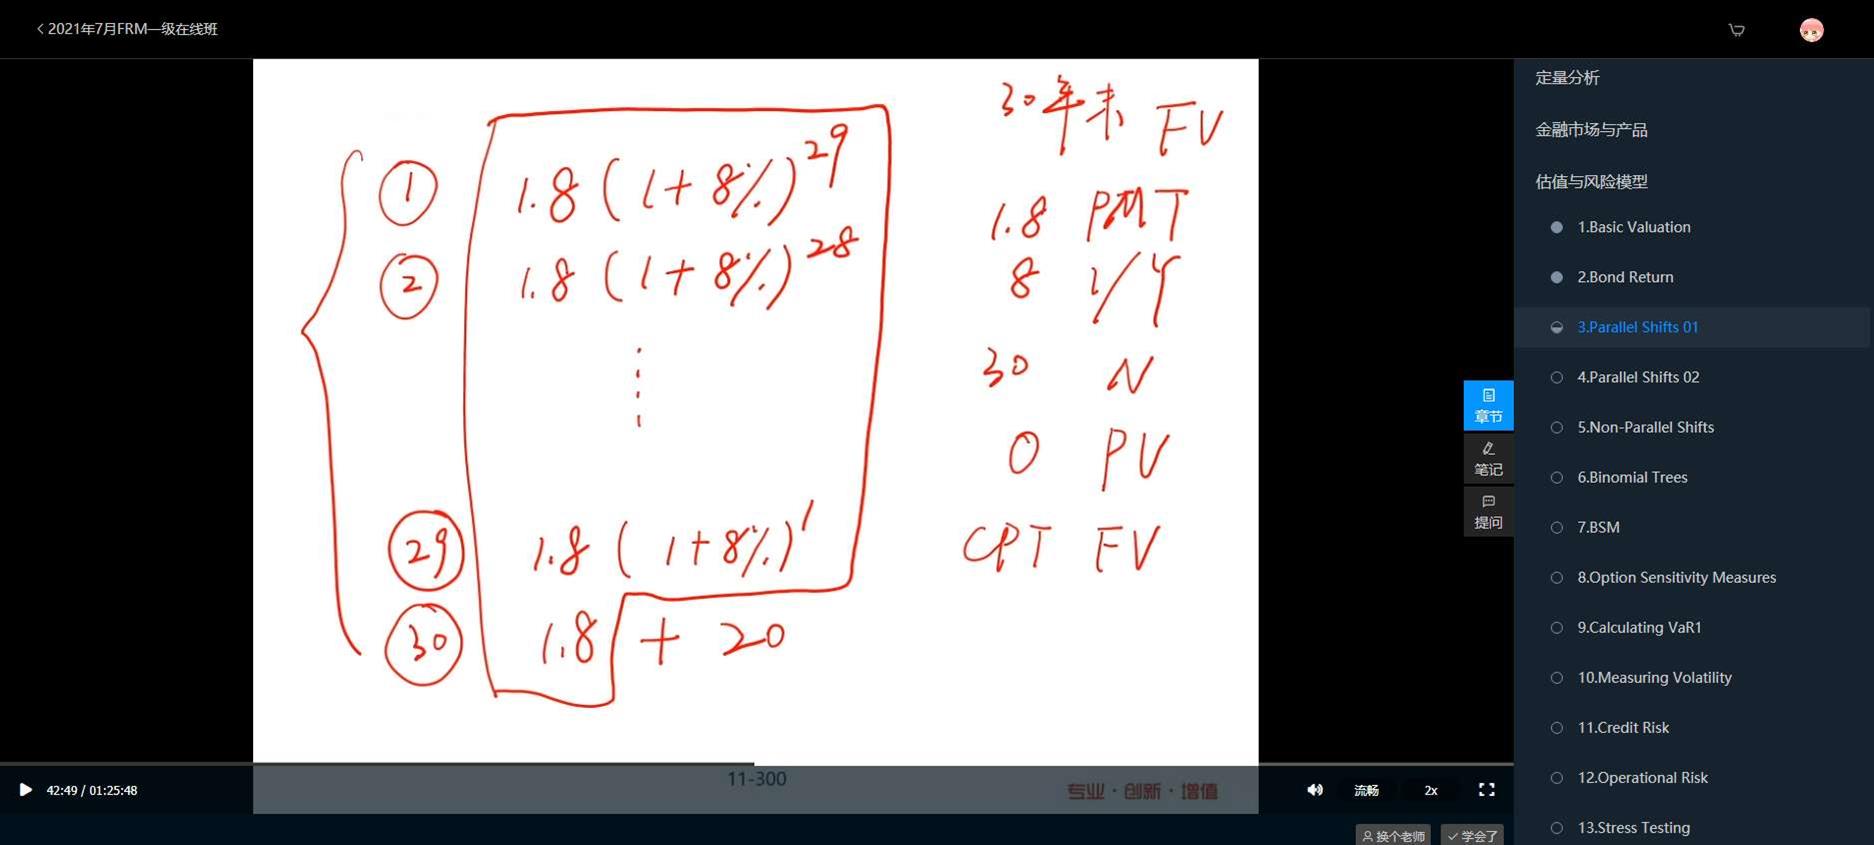 2021年7月FRM一级在线班
30年末 FV
① 1.8 (1+8%)^29
② 1.8 (1+8%)^28
⋮
㉙ 1.8 (1+8%)^1
㉚ 1.8 + 20
1.8 PMT
8 I/Y
30 N
0 PV
CPT FV
11-300
专业·创新·增值
42:49 / 01:25:48
流畅
2x
章节
笔记
提问
定量分析
金融市场与产品
估值与风险模型
1.Basic Valuation
2.Bond Return
3.Parallel Shifts 01
4.Parallel Shifts 02
5.Non-Parallel Shifts
6.Binomial Trees
7.BSM
8.Option Sensitivity Measures
9.Calculating VaR1
10.Measuring Volatility
11.Credit Risk
12.Operational Risk
13.Stress Testing
换个老师
学会了